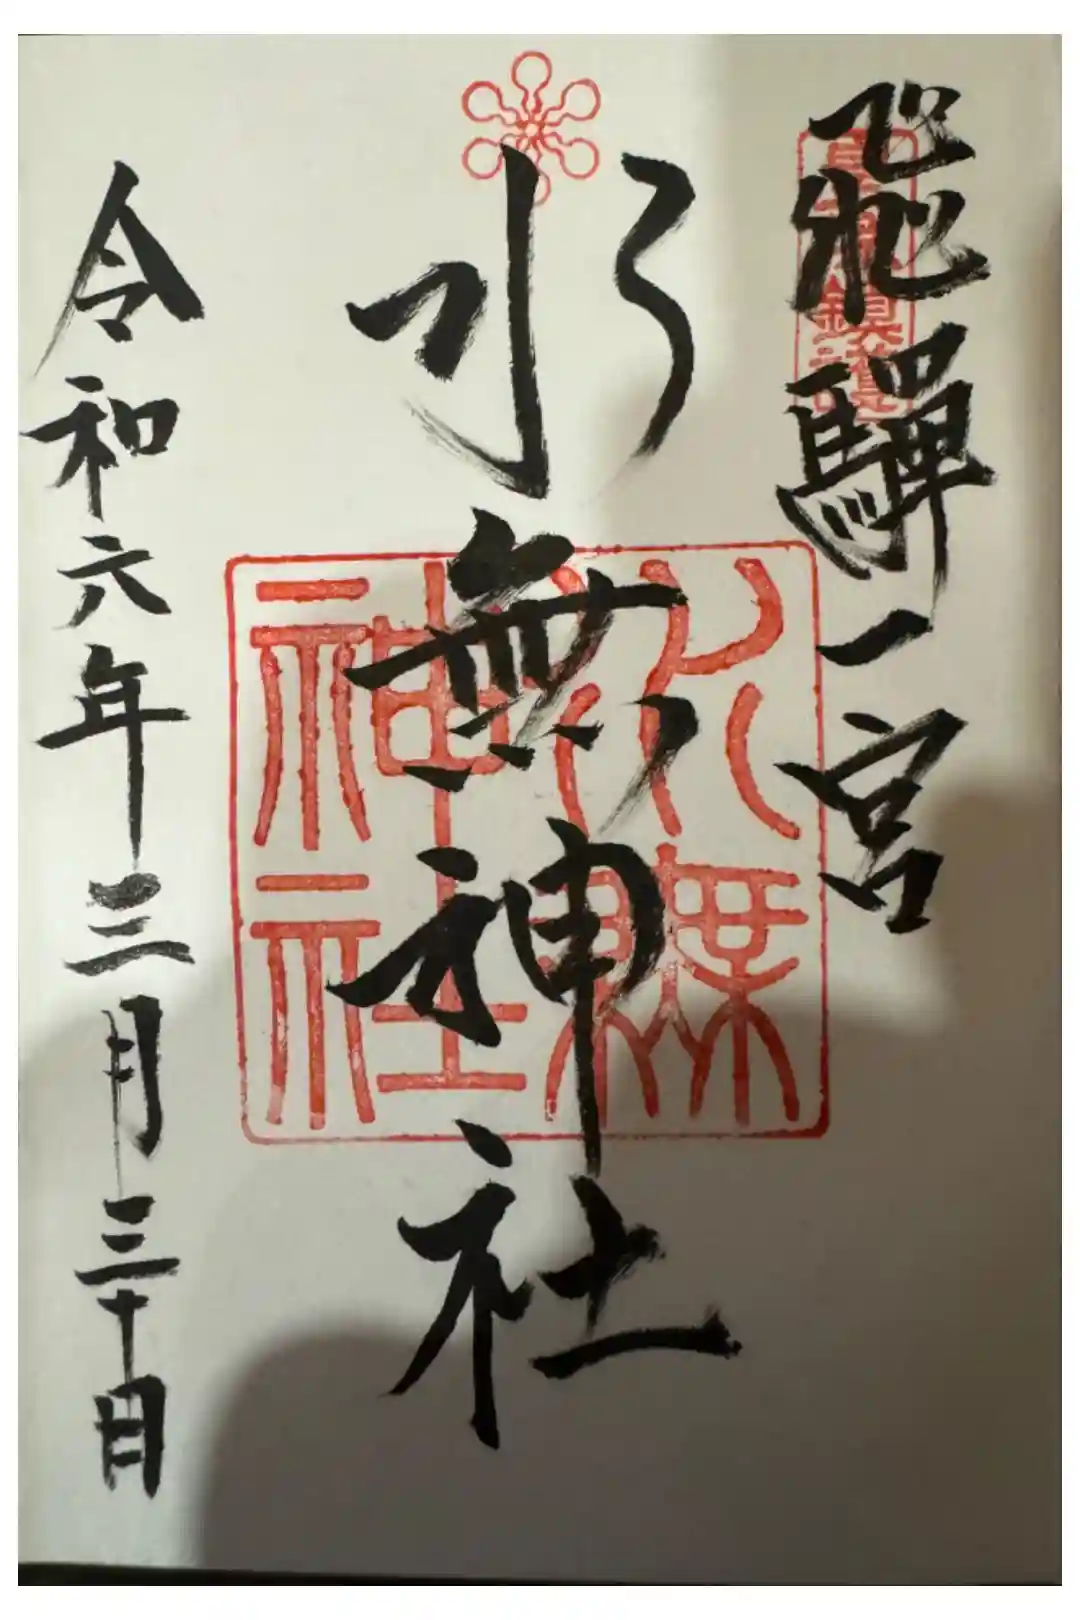 飛驒一宮
水無神社
水無神社
令和六年三月三十日